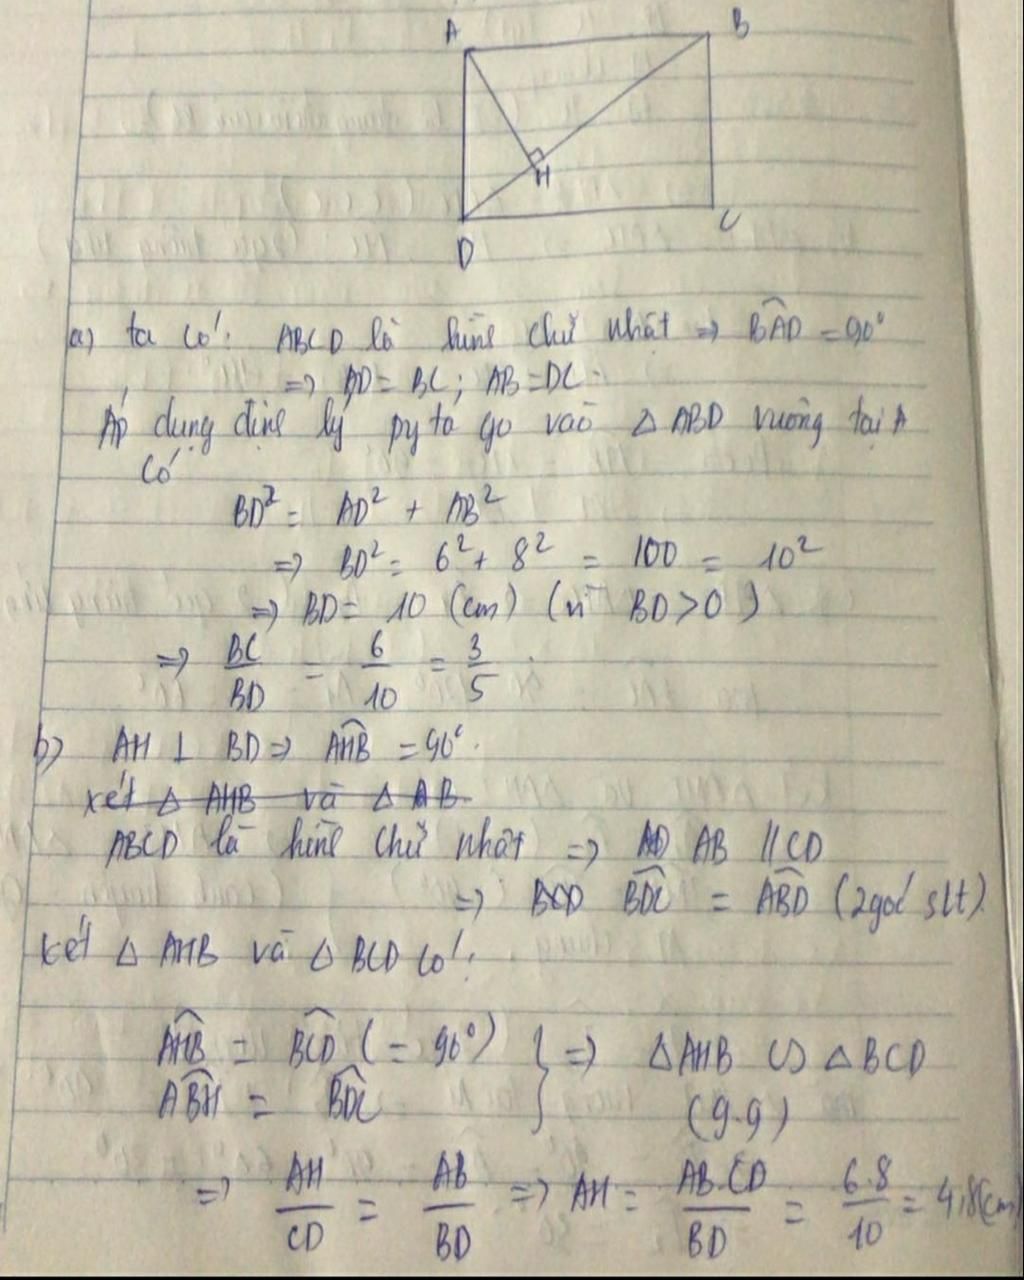 A B
H
D C
a) ta có: ABCD là hình chữ nhật => BAD = 90°
=> AD = BC; AB = DC.
Áp dụng định lý py ta go vào △ ABD vuông tại A
có
BD² = AD² + AB²
=> BD² = 6² + 8² = 100 = 10²
=> BD = 10 (cm) (vì BD > 0)
=> BC/BD = 6/10 = 3/5.
b) AH ⊥ BD => AHB = 90°.
xét △ AHB và △ AB
ABCD là hình chữ nhật => AD AB // CD
=> BCD BDC = ABD (2 góc slt).
Xét △ AHB và △ BCD có:
AHB = BCD (= 90°) } => △AHB ∽ △BCD
ABH = BDC (g.g)
=> AH/CD = AB/BD => AH = AB.CD/BD = 6.8/10 = 4,8(cm)